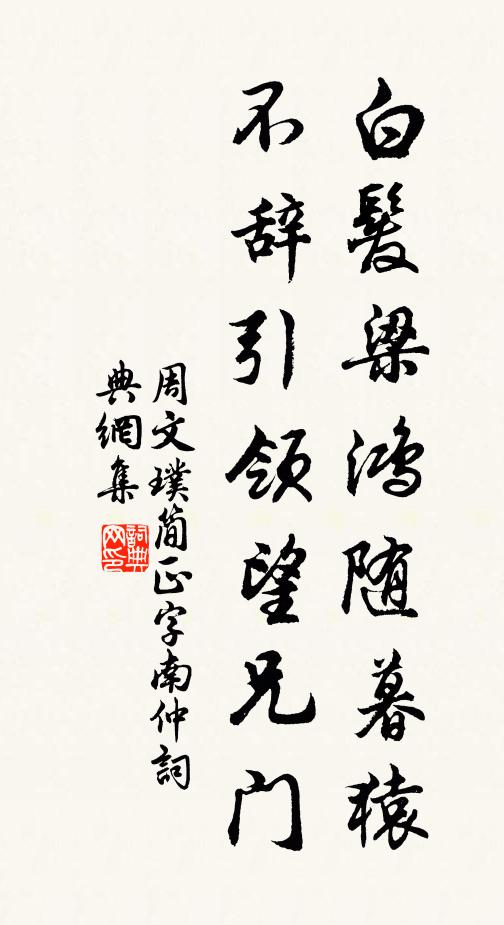 白髮梁鸿随暮猿
不辞引领望兄门
周文璞简正字南仲詞
典網集
詞典网印